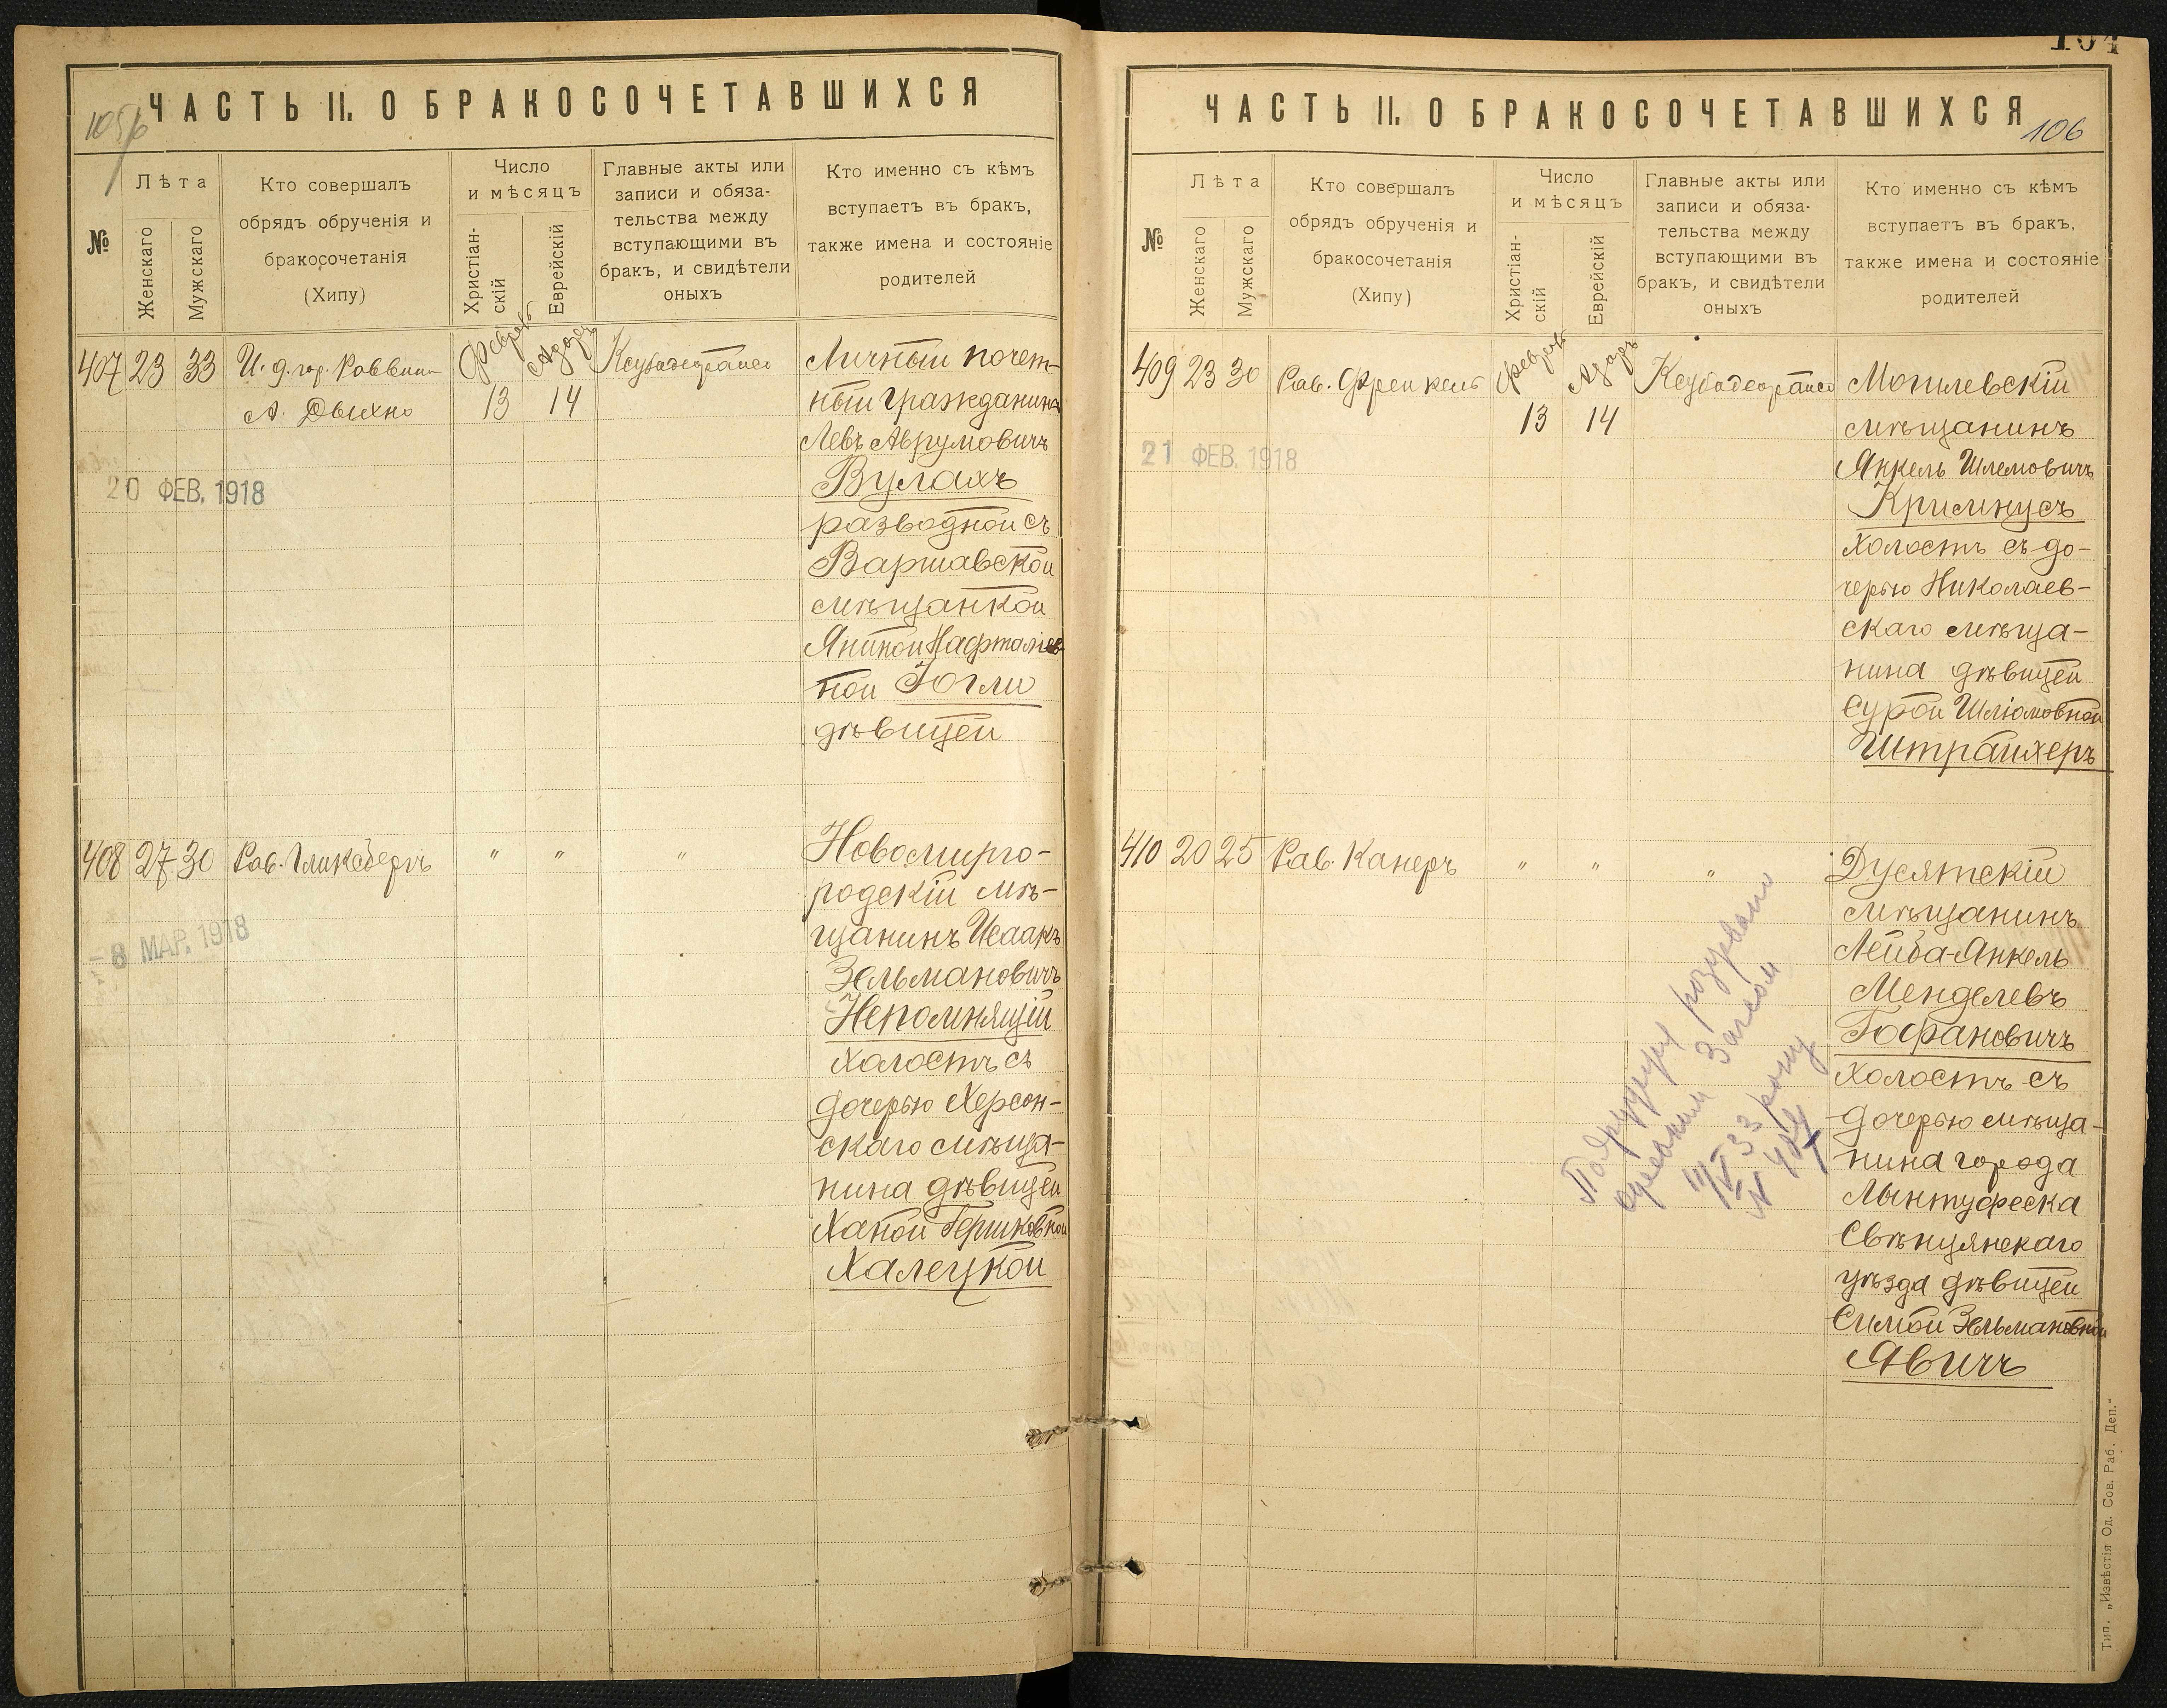 105/6
ЧАСТЬ II. О БРАКОСОЧЕТАВШИХСЯ
№
Лѣта
Женскаго
Мужскаго
Кто совершалъ
обрядъ обрученія и
бракосочетанія
(Хипу)
Число
и мѣсяцъ
Христіан-
скій
Еврейскій
Главные акты или
записи и обяза-
тельства между
вступающими въ
бракъ, и свидѣтели
оныхъ
Кто именно съ кѣмъ
вступаетъ въ бракъ,
также имена и состояніе
родителей
407 23 33
И. д. гор. Раввина
А. Дыхно
Февраль
13
Адаръ
14
20 ФЕВ. 1918
Личный почет-
ный гражданинъ
Левъ Аврумовичъ
Вулахъ
разводной съ
Варшавской
мѣщанкой
Яниной Нафталіев-
ной Гогли
дѣвицей
408 27 30
Рав. Гликсбергъ
" " "
8 МАР. 1918
Новомирго-
родскій мѣ-
щанинъ Исаакъ
Зельмановичъ
Непомнящій
холостъ съ
дочерью Херсон-
скаго мѣща-
нина дѣвицей
Ханой Гершковной
Халецкой
104
ЧАСТЬ II. О БРАКОСОЧЕТАВШИХСЯ
106
№
Лѣта
Женскаго
Мужскаго
Кто совершалъ
обрядъ обрученія и
бракосочетанія
(Хипу)
Число
и мѣсяцъ
Христіан-
скій
Еврейскій
Главные акты или
записи и обяза-
тельства между
вступающими въ
бракъ, и свидѣтели
оныхъ
Кто именно съ кѣмъ
вступаетъ въ бракъ,
также имена и состояніе
родителей
409 23 30
Рав. Френкель
Февраль
13
Адаръ
14
21 ФЕВ. 1918
Могилевскій
мѣщанинъ
Янкель Шлемовичъ
Кримнусъ
холостъ съ до-
черью Николаев-
скаго мѣща-
нина дѣвицей
Сурой Шліомовной
Штрайхеръ
410 20 25
Рав. Канеръ
" " "
Дусятскій
мѣщанинъ
Лейба-Янкель
Менделевъ
Гофановичъ
холостъ съ
дочерью мѣща-
нина города
Свѣнцянскаго
уѣзда дѣвицей
Симой Зельмановной
Явичъ
розірвано
Загсом
33 року
Тип. „Извѣстія Од. Сов. Раб. Деп."